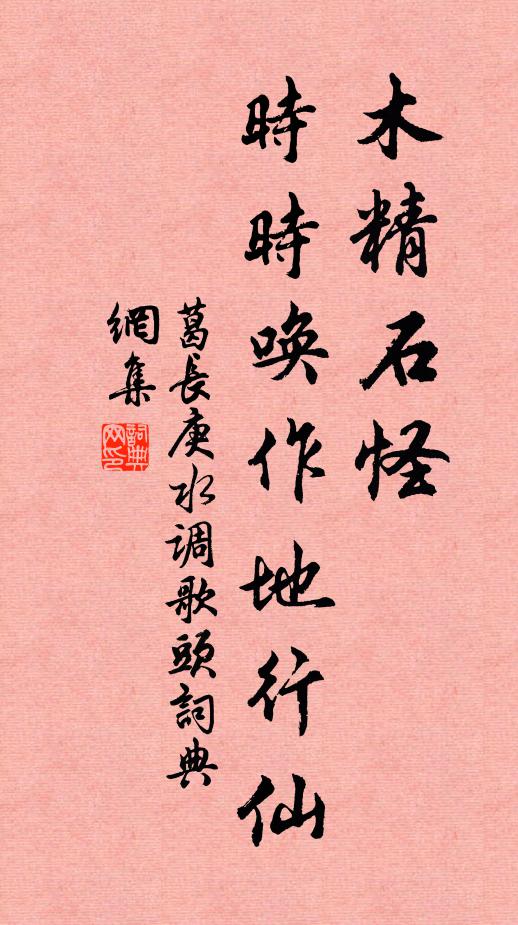 木精石怪
時時喚作地行仙
葛長庚水调歌頭詞典
網集
詞典网印